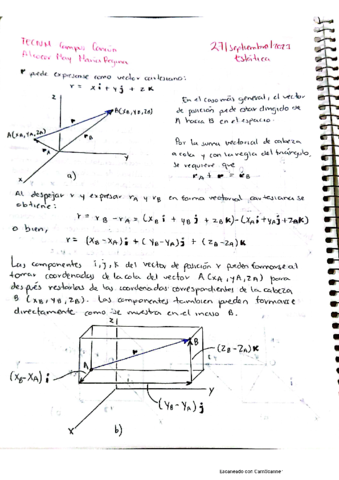 TECNM Campus Cancún
27/septiembre/2021
Estática
r puede expresarse como vector cartesiano:
r = xi + yj + zk
z
A(xA, yA, zA)
rA
r
rB
y
x
a)
En el caso más general, el vector
de posición puede estar dirigido de
A hacia B en el espacio.
Por la suma vectorial de cabeza
a cola y con la regla del triángulo,
se requiere que
rA + r = rB
Al despejar r y expresar rA y rB en forma vectorial cartesiana se
obtiene:
r = rB - rA = (xB i + yB j + zB k) - (xA i + yA j + zA k)
o bien,
r = (xB - xA)i + (yB - yA)j + (zB - zA)k
Las componentes i, j, k del vector de posición r pueden formarse al
tomar coordenadas de la cola del vector A(xA, yA, zA) para
después restarlas de las coordenadas correspondientes de la cabeza
B (xB, yB, zB). Las componentes también pueden formarse
directamente como se muestra en el inciso B.
z
B
r
A
(zB - zA)k
(xB - xA)i
y
(yB - yA)j
x
b)
Escaneado con CamScanner